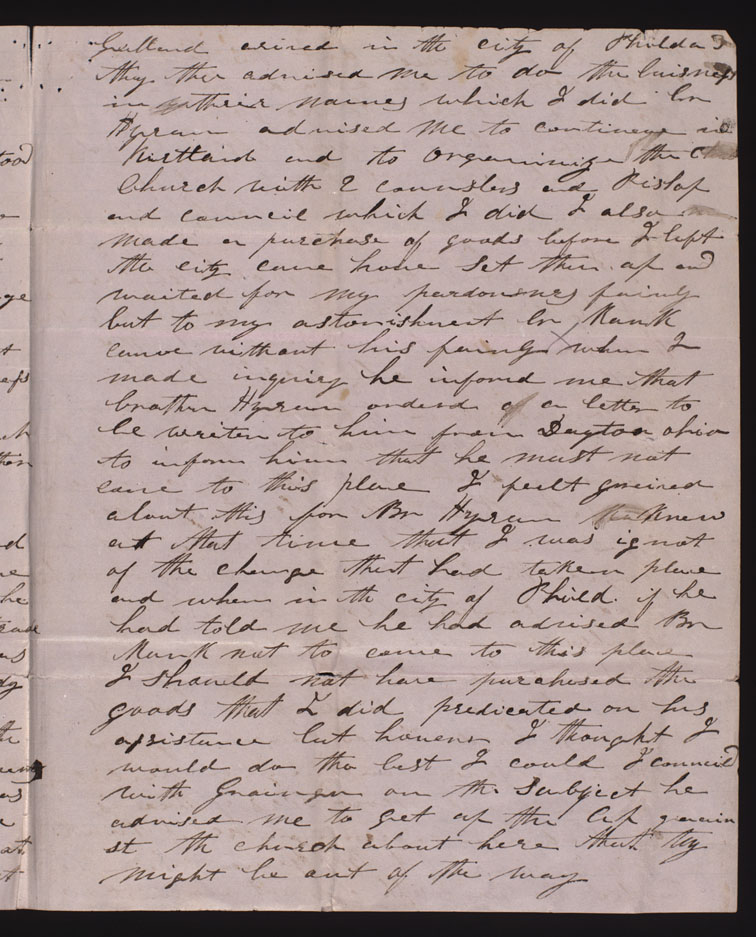 Galland arived in the city of Philda
they ther advised me to do the buisness
in ther names which I did Br
Hyrum advised me to continue in
Kirtland and to Organinize the Ch
Church with 2 counslers and Bishop
and council which I did I also
made a purchase of goods before I left
the city came home set them up and
waited for my pardonsnes
but to my astonishment Br Mank
came without his when I
made inquiry he infored me that
brother Hyrum orderd of a letter to
be writen to him from Dayton ohio
to inform him that he must not
come to this place I feelt greived
about this for Br Hyrum knew
at that time that I was ignot
of the change that had taken place
and when in th city of Phild. if he
had told me he had advised Br
Mank not to come to this place
I should not have purchased the
goods that I did predicated on his
assistance but howevr I thought I
would do the best I could I council
with Grainger on the Subject he
advised me to get up the again
st th church about here that they
might be out of the way
too
ge
t
ch
nd
he
as
th
as
at
t